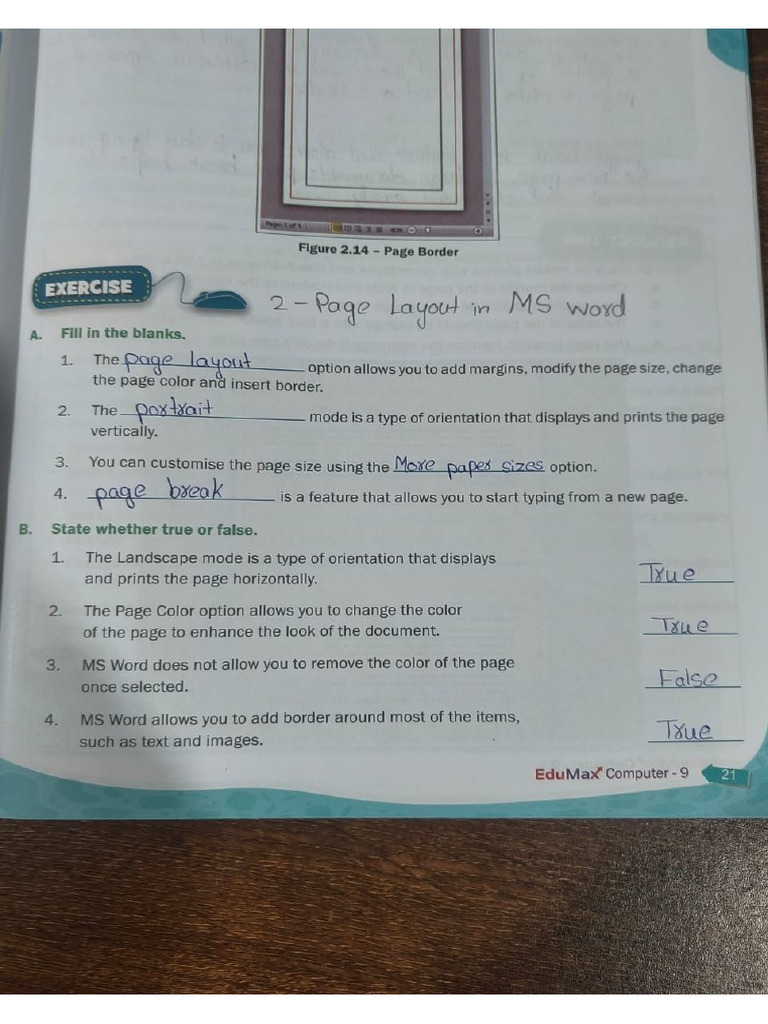 Page: 1 of 1
Figure 2.14 – Page Border
EXERCISE
2 - Page Layout in MS word
A. Fill in the blanks.
1. The page layout option allows you to add margins, modify the page size, change
the page color and insert border.
2. The portrait mode is a type of orientation that displays and prints the page
vertically.
3. You can customise the page size using the More paper sizes option.
4. page break is a feature that allows you to start typing from a new page.
B. State whether true or false.
1. The Landscape mode is a type of orientation that displays
and prints the page horizontally. True
2. The Page Color option allows you to change the color
of the page to enhance the look of the document. True
3. MS Word does not allow you to remove the color of the page
once selected. False
4. MS Word allows you to add border around most of the items,
such as text and images. True
EduMax Computer - 9 21